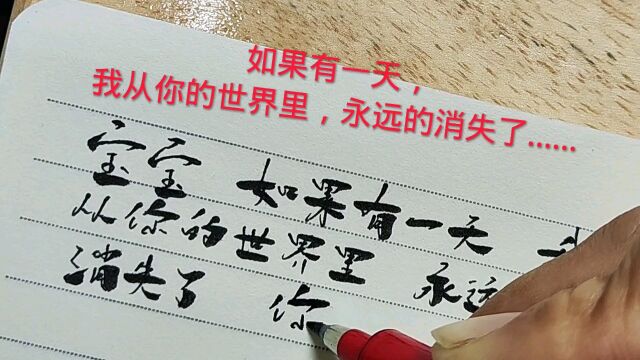 如果有一天，
我从你的世界里，永远的消失了......
宝宝 如果有一天
从你的世界里 永远
消失了 你